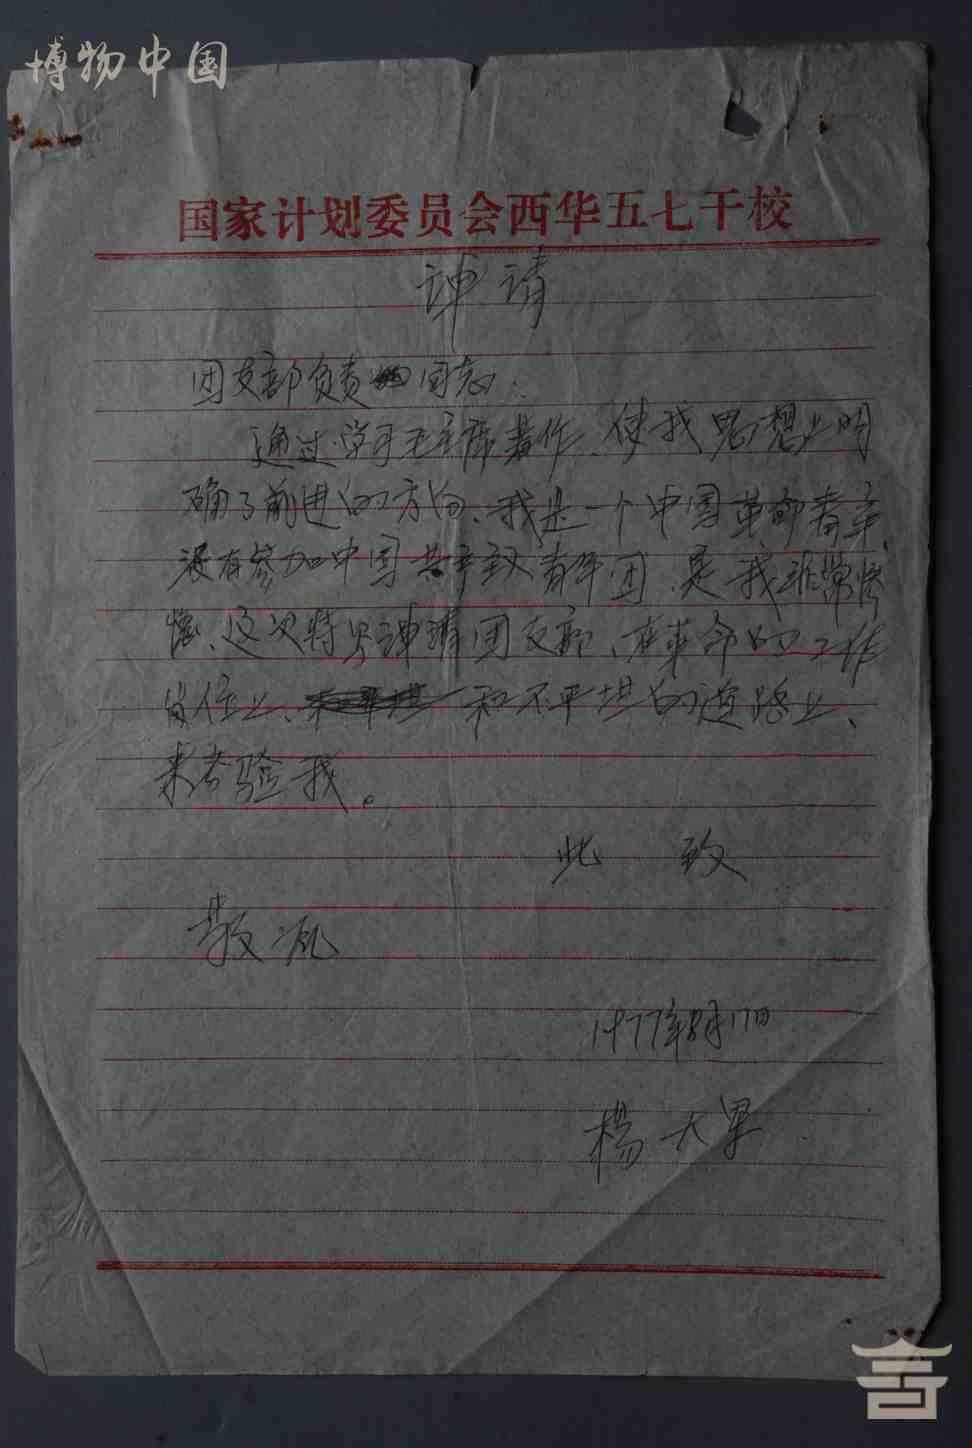 博物中国
国家计划委员会西华五七干校
申请
团支部负责同志：
通过学习毛主席著作、使我思想上明
确了前进的方向、我是一个中国革命青年、
没有参加中国共产主义青年团、是我非常
这次特此申请团支部、在革命的工作
岗位上、和不平坦的道路上、
来考验我。
此 致
敬礼
1977年8月17日
楊大